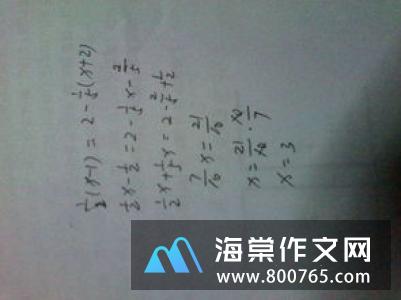 ½(x-1) = 2 - ⅕(x+2)
½x - ½ = 2 - ⅕x - ⅖
½x + ⅕x = 2 - ⅖ + ½
7/10 x = 21/10
x = 21/10 · 10/7
x = 3
海棠作文网
www.800765.com